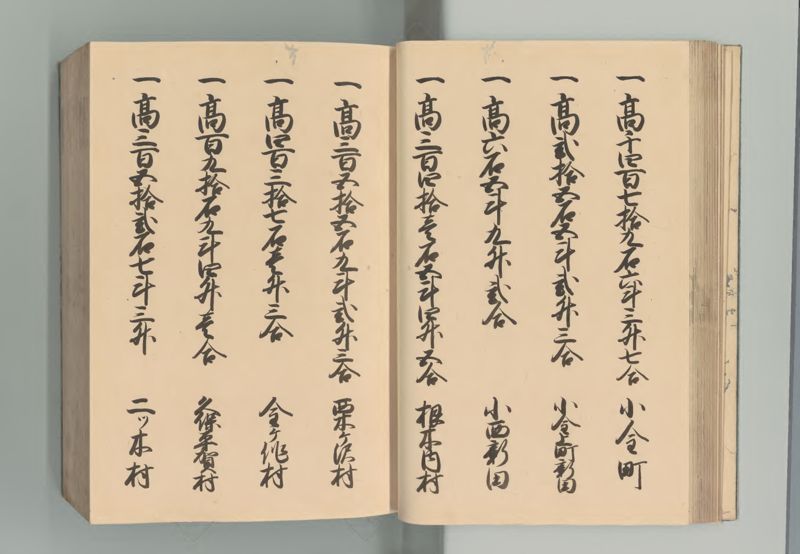 一高千四百七拾九石六斗三升七合 小金町
一高弐拾五石五斗弐升三合 小金町新田
一高六石五斗九升弐合 小西新田
一高三百四拾壱石五斗四升五合 根木内村
一高三百五拾五石九斗弐升三合 栗ヶ沢村
一高四百三拾七石壱升三合 金ヶ作村
一高百九拾石九斗四升壱合 久保平賀村
一高三百五拾弐石七斗三升 二ツ木村